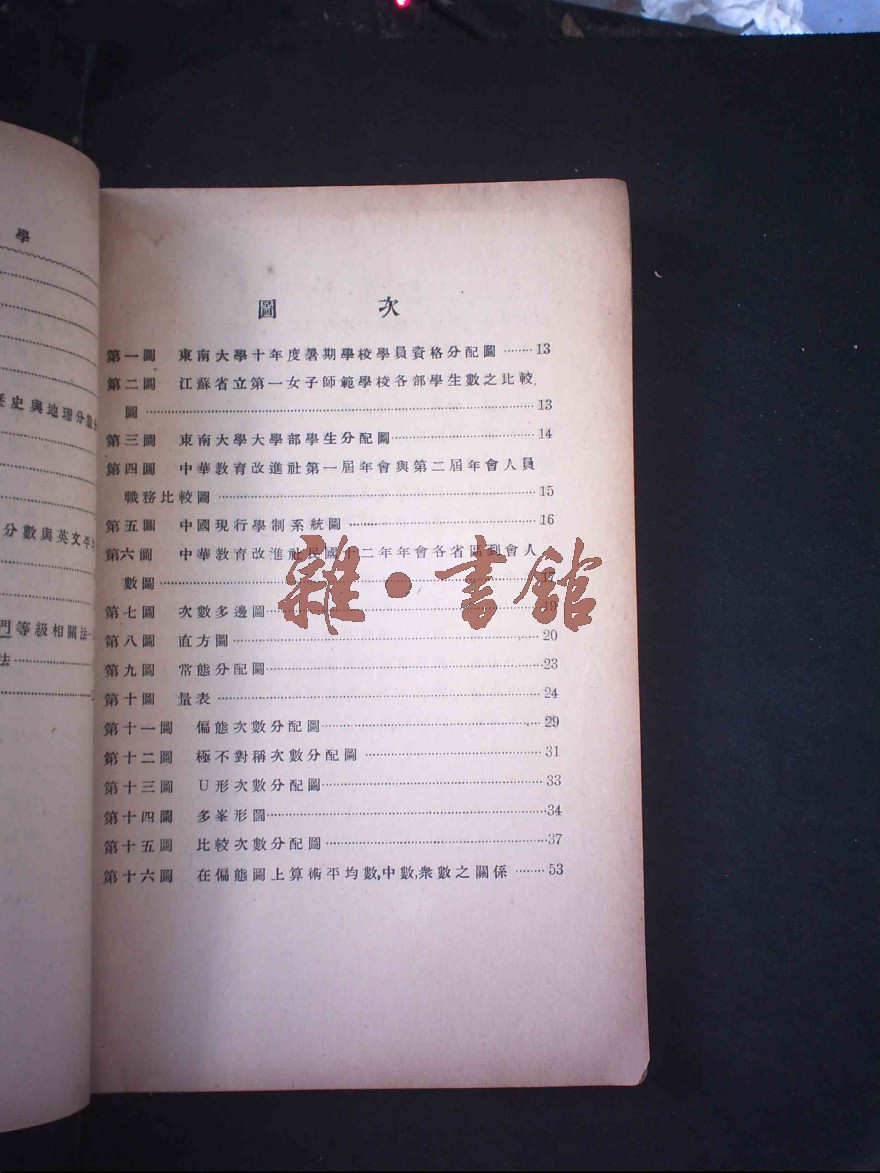 學
歷史與地理分數
分數與英文平
門等級相關法
法
圖 次
第一圖 東南大學十年度暑期學校學員資格分配圖 ········ 13
第二圖 江蘇省立第一女子師範學校各部學生數之比較
圖 ········ 13
第三圖 東南大學大學部學生分配圖 ········ 14
第四圖 中華教育改進社第一屆年會與第二屆年會人員
職務比較圖 ········ 15
第五圖 中國現行學制系統圖 ········ 16
第六圖 中華教育改進社民國十二年年會各省區到會人
數圖 ········ 17
第七圖 次數多邊圖 ········ 19
第八圖 直方圖 ········ 20
第九圖 常態分配圖 ········ 23
第十圖 量表 ········ 24
第十一圖 偏態次數分配圖 ········ 29
第十二圖 極不對稱次數分配圖 ········ 31
第十三圖 U形次數分配圖 ········ 33
第十四圖 多峯形圖 ········ 34
第十五圖 比較次數分配圖 ········ 37
第十六圖 在偏態圖上算術平均數,中數,衆數之關係 ········ 53
雜·書館